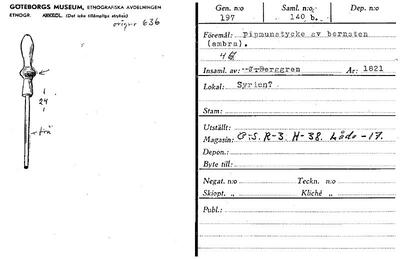 GÖTEBORGS MUSEUM, ETNOGRAFISKA AVDELNINGEN
ETNOGR. ARKEOL. (Det icke tillämpliga strykes)
636
24
trä
Gen. n:o Saml. n:o Dep. n:o
197 140 b.
Föremål: Pipmunstycke av bernsten
(ambra).
Insaml. av: Berggren År: 1821
Lokal: Syrien?
Stam:
Utställt:
Magasin: R-3. H-38. Låda-17.
Depon.:
Byte till:
Negat. n:o Teckn. n:o
Skiopt. „ Kliché „
Publ.: